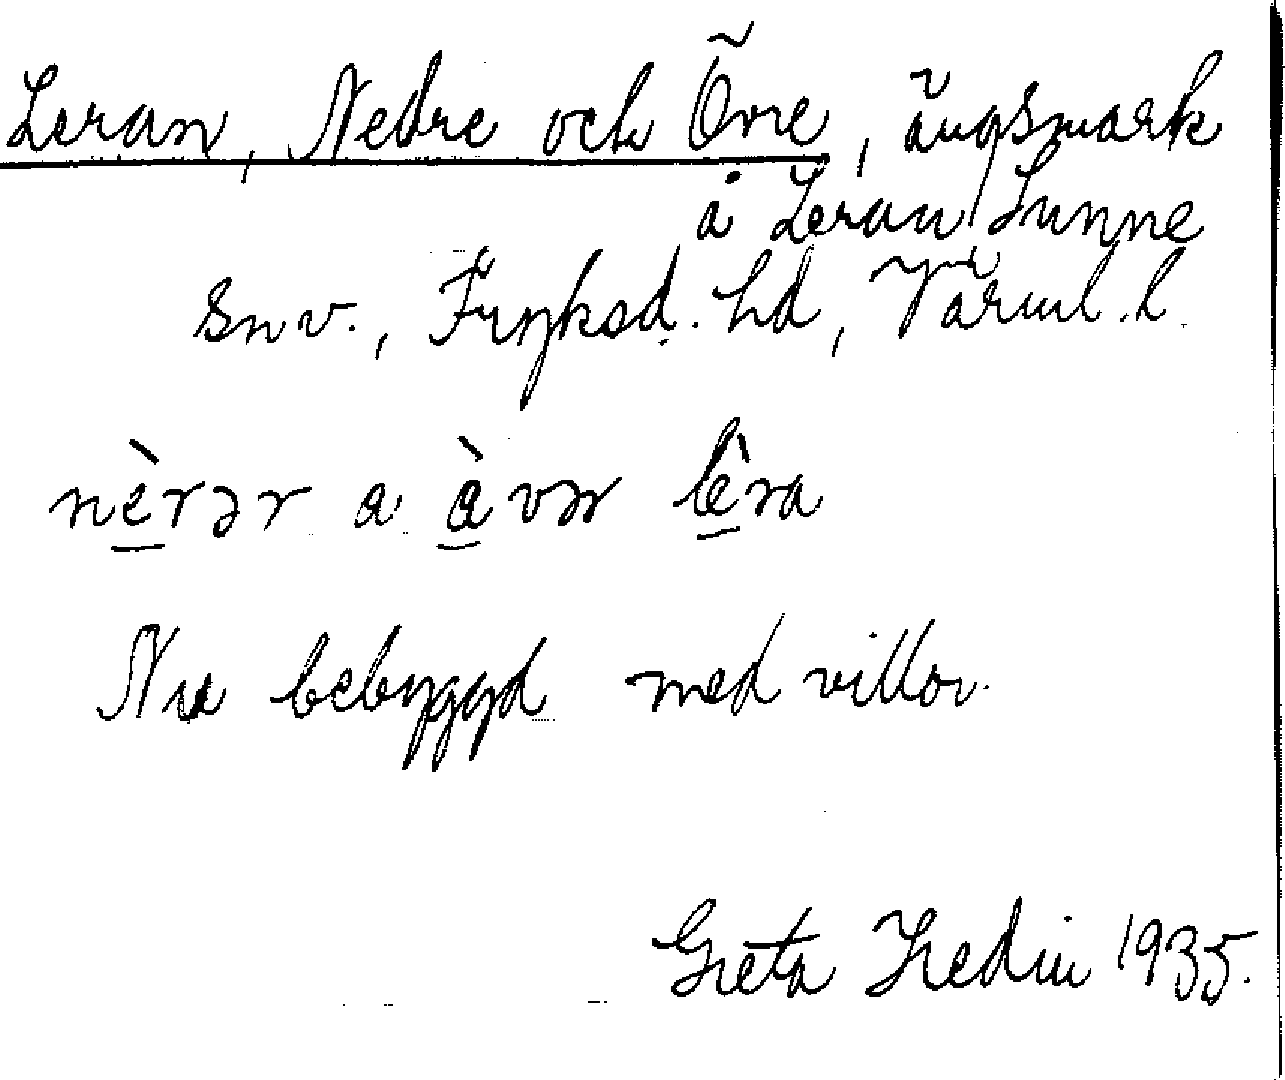 Leran, Nedre och Övre, ängsmark
å Leran, Sunne
snv., Fryksd. hd, Värml. l.
nèrər a àvər lèra
Nu bebyggd med villor.
Greta Hedin 1935.